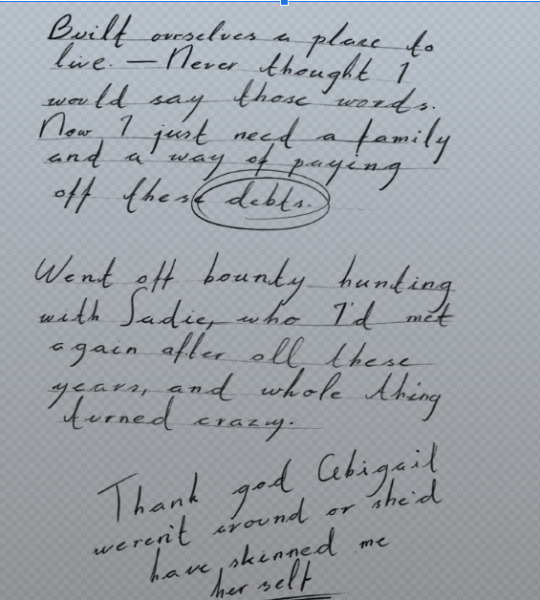 Built ourselves a place to
live. — Never thought I
would say those words.
Now I just need a family
and a way of paying
off these debts.
Went off bounty hunting
with Sadie, who I'd met
again after all these
years, and whole thing
turned crazy.
Thank god Abigail
weren't around or she'd
have skinned me
her self